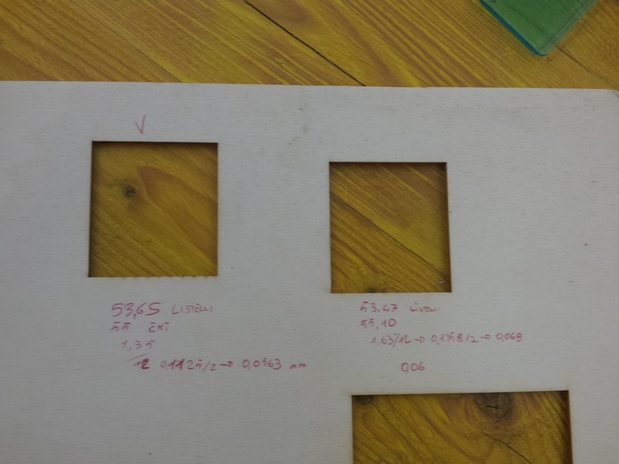 √
53,65 LISTELLI
55 EXT
1,35
/12 0,1125/2 → 0,0563 mm
53,47
55,10
1,63/12 → 0,1358/2 → 0,068
0,06